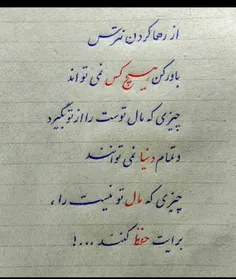 از رها کردن نترس
باور کن هیچ کس نمی تواند
چیزی که مال توست را از تو بگیرد
و تمام دنیا نمی توانند
چیزی که مال تو نیست را ,
برایت حفظ کنند ...!